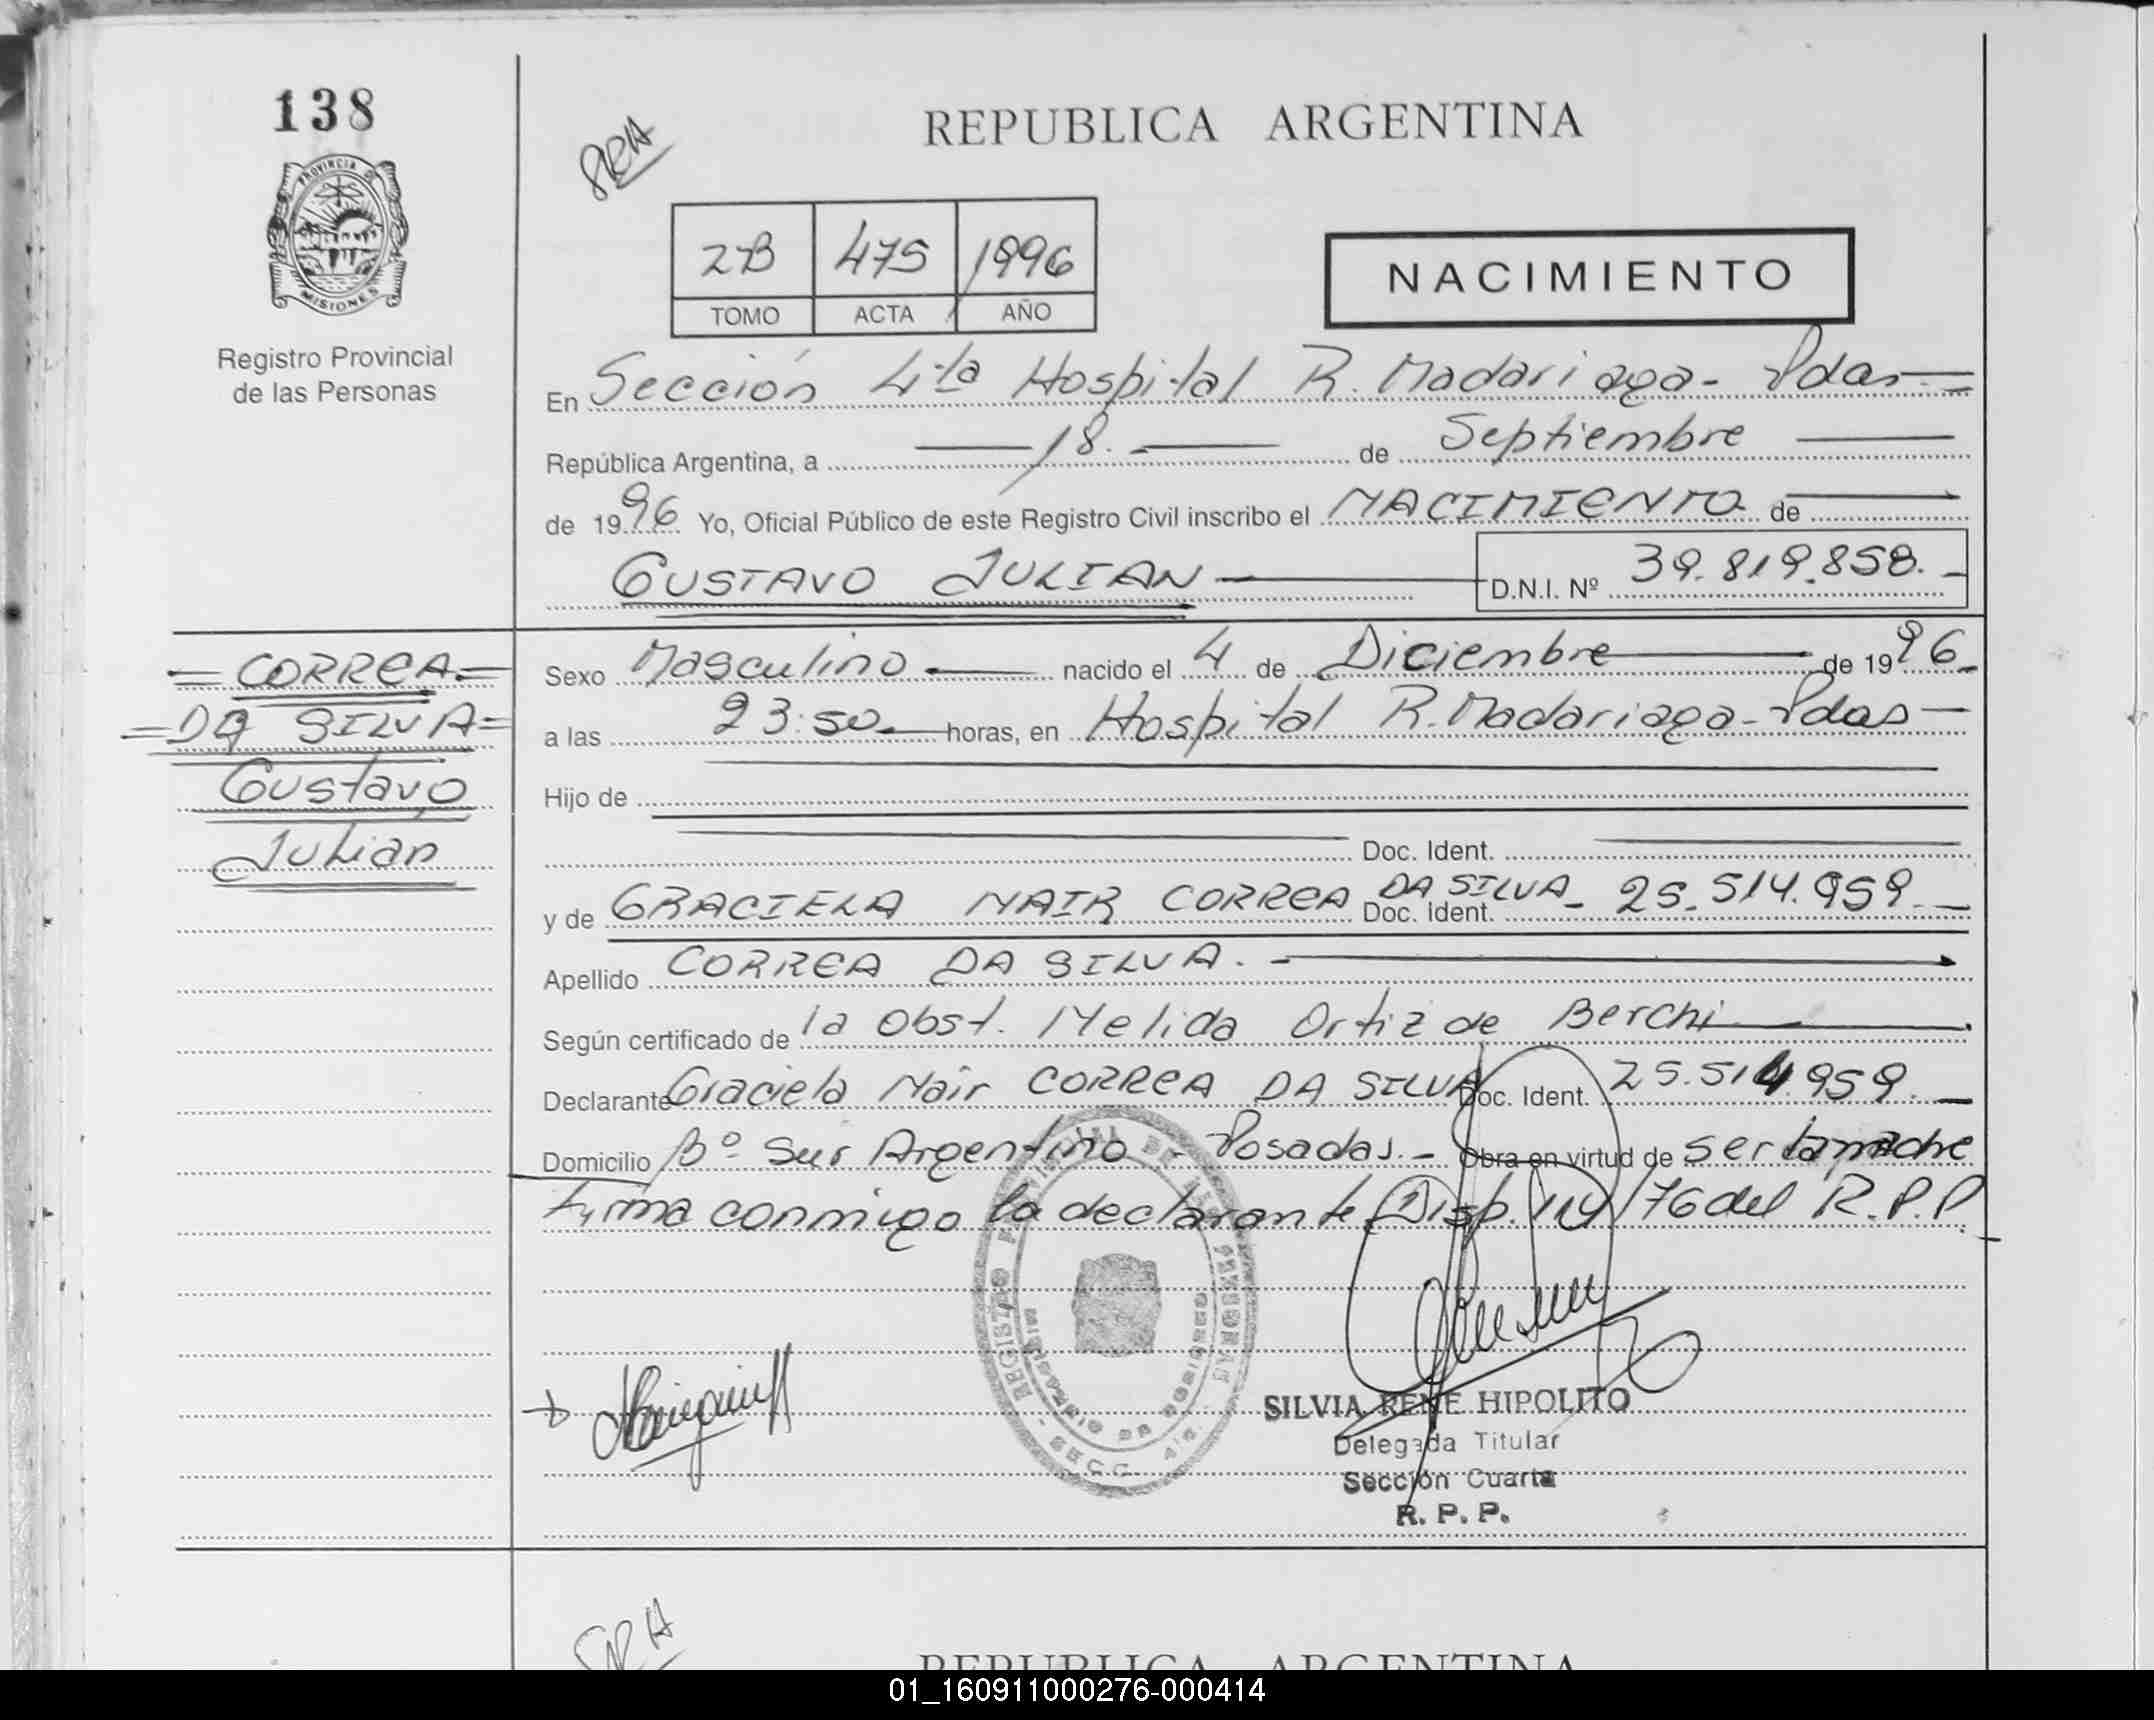 138
PROVINCIA DE
MISIONES
Registro Provincial
de las Personas
REPUBLICA ARGENTINA
2B 475 1996
TOMO ACTA AÑO
NACIMIENTO
En Sección 4ta Hospital R. Madariaga - Pdas
República Argentina, a 18. de Septiembre
de 1996 Yo, Oficial Público de este Registro Civil inscribo el NACIMIENTO de
GUSTAVO JULIAN D.N.I. Nº 39.819.858.
CORREA
DA SILVA
Gustavo
Julian
Sexo Masculino nacido el 4 de Diciembre de 1996
a las 23:50 horas, en Hospital R. Madariaga - Pdas
Hijo de
Doc. Ident.
y de GRACIELA NAIR CORREA DA SILVA Doc. Ident. 25.514.959.
Apellido CORREA DA SILVA.
Según certificado de la Obst. Nelida Ortiz de Berchi
Declarante Graciela Nair CORREA DA SILVA Doc. Ident. 25.514.959.
Domicilio Bº Sur Argentino - Posadas. - Obra en virtud de ser la madre
Firma conmigo la declarante Disp. 14/76 del R.P.P.
SILVIA RENE HIPOLITO
Delegada Titular
Sección Cuarta
R. P. P.
REPUBLICA ARGENTINA
01_160911000276-000414